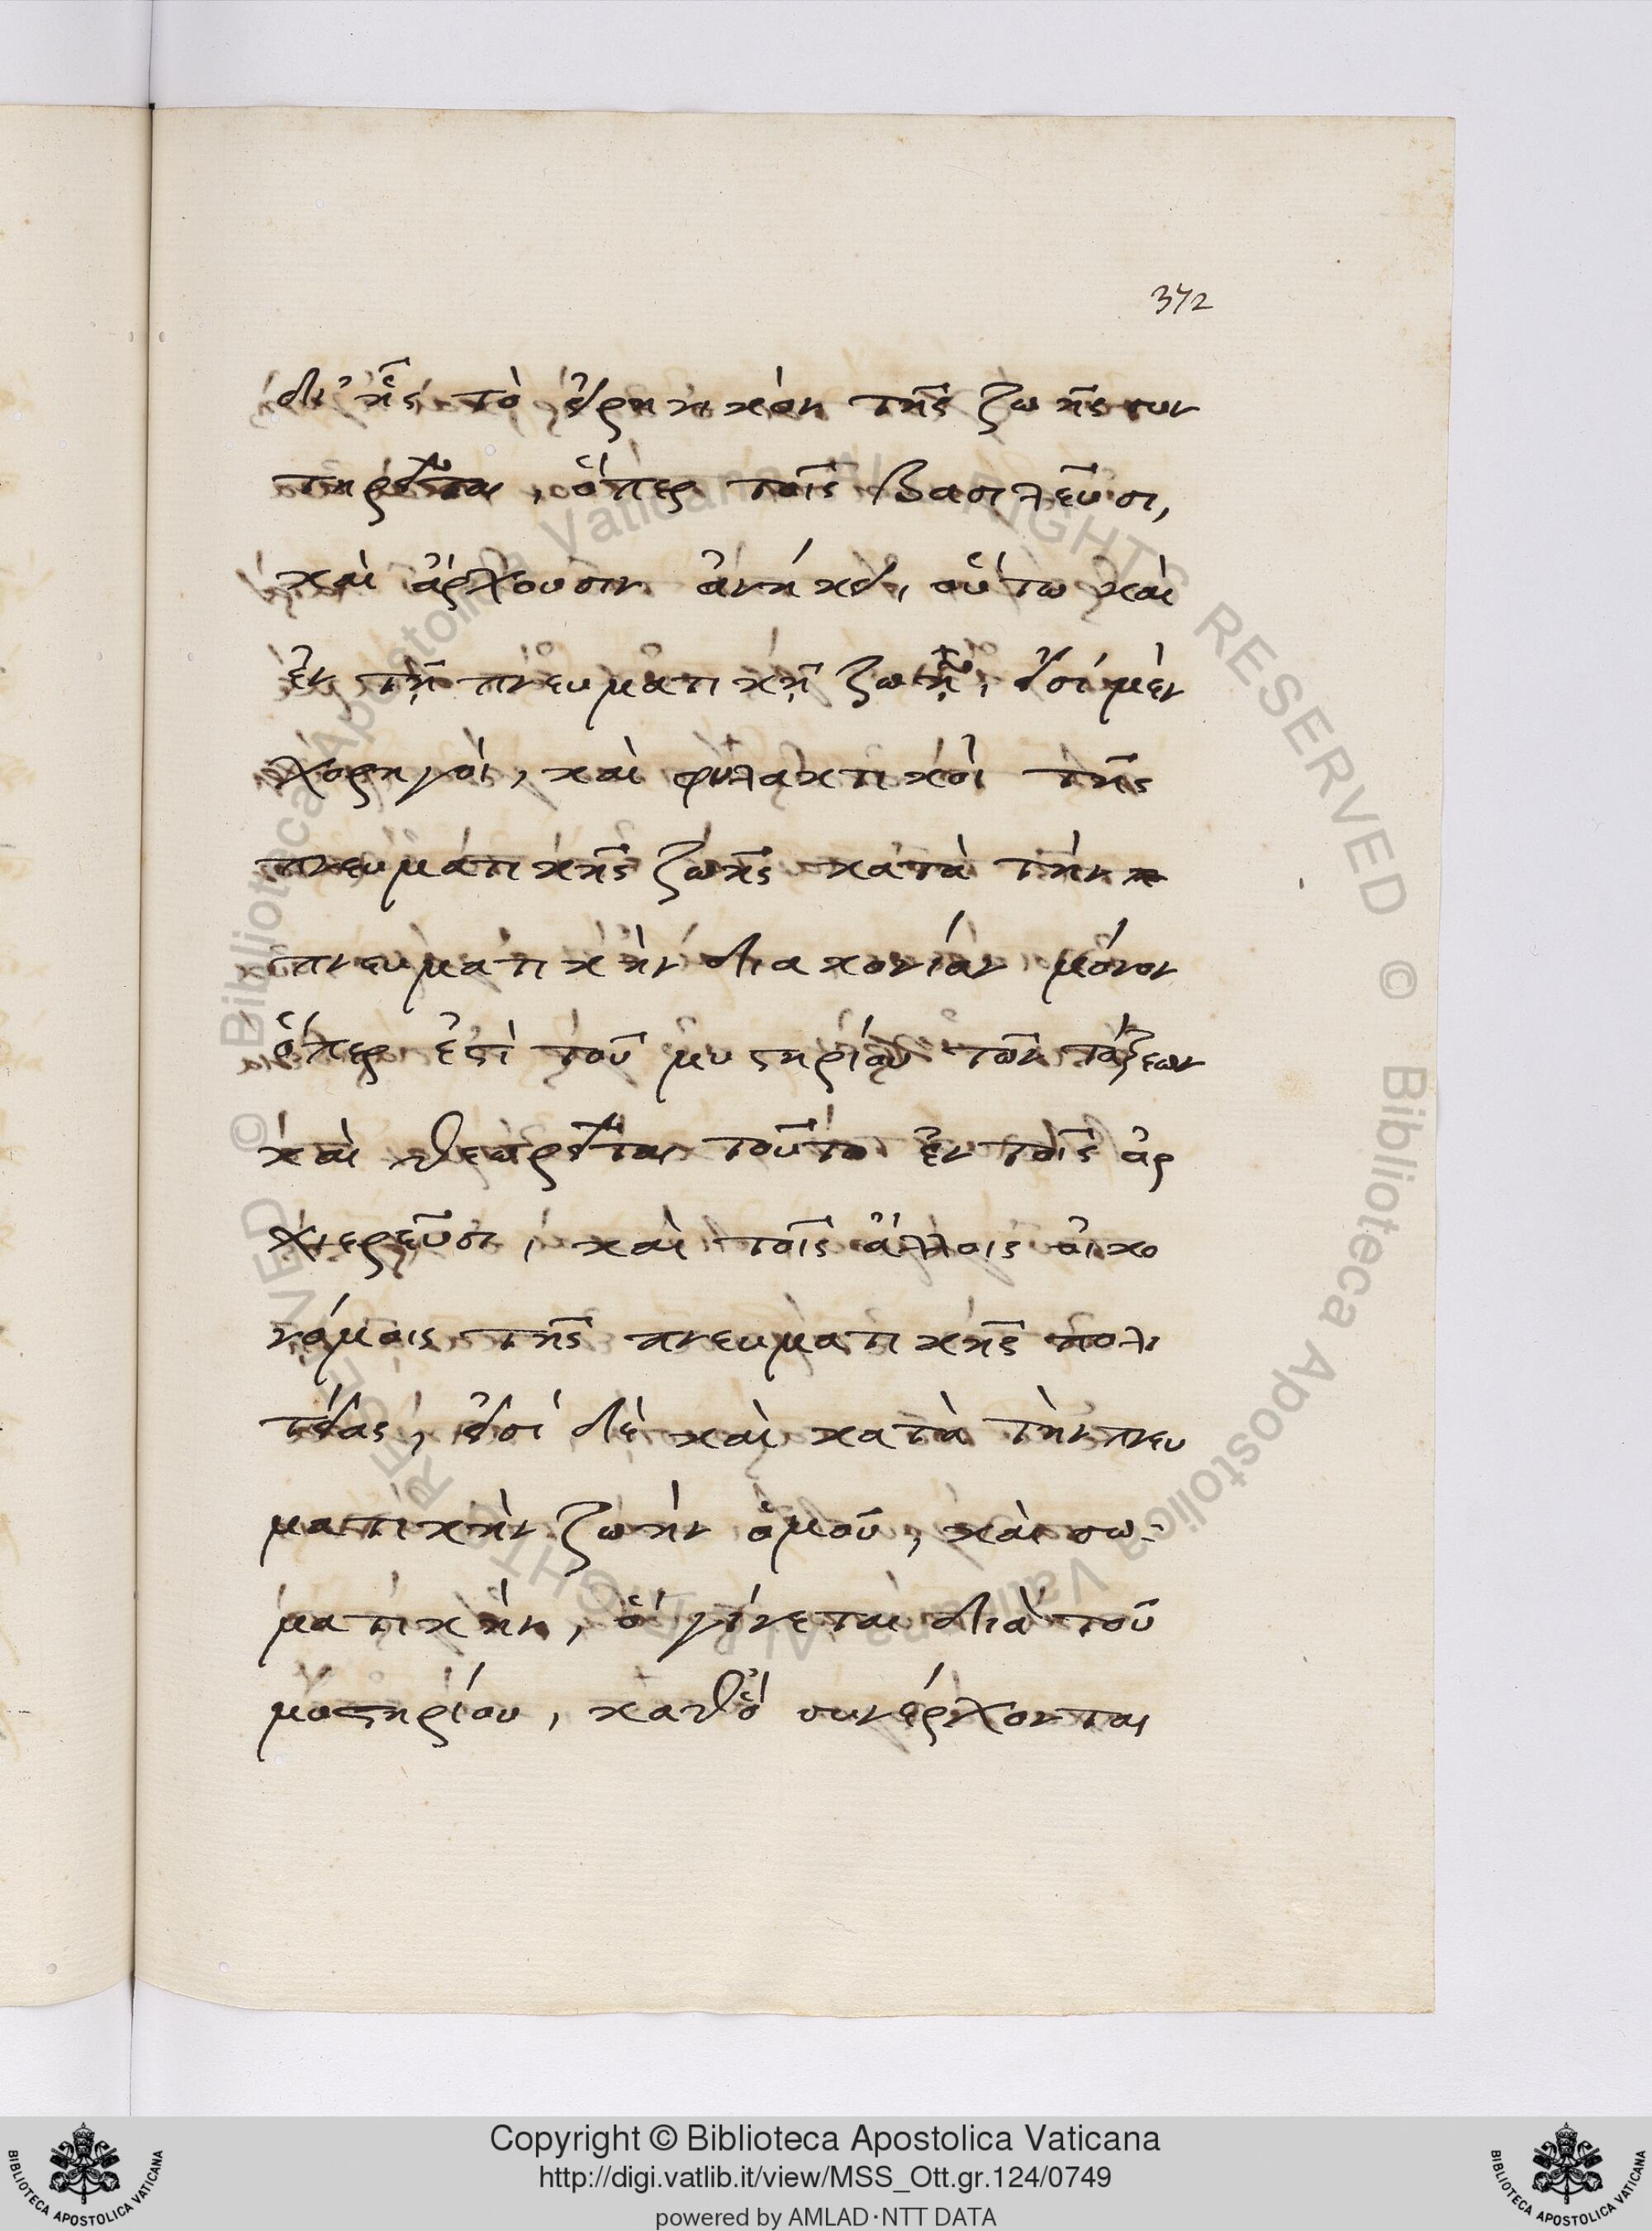 372
δι' ἧς τὸ εἰρηνικὸν τῆς ζωῆς συν
τηρεῖται, ὅπερ τοῖς βασιλεῦσι,
καὶ ἄρχουσιν ἀνήκει, οὕτω καὶ
ἐν τῇ πνευματικῇ ζωῇ, εἰσὶ μὲν
χορηγοὶ, καὶ φυλακτικοὶ τῆς
πνευματικῆς ζωῆς κατὰ τὴν
πνευματικὴν διακονίαν μόνον
ὅπερ ἐστὶ τοῦ μυστηρίου τῶν τάξεων
καὶ θεωρεῖται τοῦτο ἐν τοῖς ἀρ
χιερεῦσι, καὶ τοῖς ἄλλοις οἰκο
νόμοις τῆς πνευματικῆς πολι
τείας, εἰσὶ δὲ καὶ κατὰ τὴν πνευ
ματικὴν ζωὴν ὁμοῦ, καὶ σω-
ματικὴν, ὃ γίνεται διὰ τοῦ
μυστηρίου, καθ' ὃ συνέρχονται
© Biblioteca Apostolica Vaticana ALL RIGHTS RESERVED © Biblioteca Apostolica Vaticana ALL RIGHTS RESERVED
BIBLIOTECA APOSTOLICA VATICANA
Copyright © Biblioteca Apostolica Vaticana
http://digi.vatlib.it/view/MSS_Ott.gr.124/0749
powered by AMLAD·NTT DATA
BIBLIOTECA APOSTOLICA VATICANA